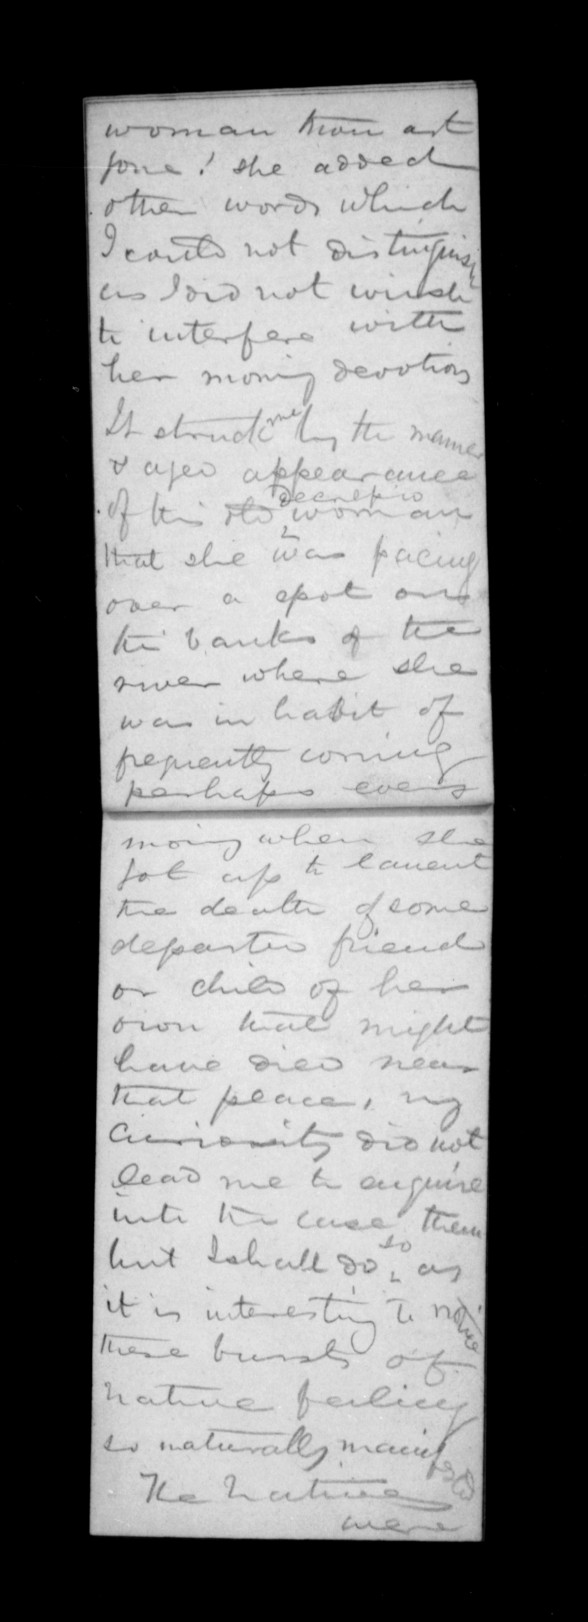 woman thou art
gone! she added
other words which
I could not distinguish
as I did not wish
to interfere with
her morning devotions
It struck me by the manner
& aged appearance
of this old decrepid woman
that she was pacing
over a spot on
the banks of the
river where she
was in habit of
frequently coming
perhaps every
moring when she
got up to lament
the death of some
departed friend
or child of her
own that might
have died near
that place, my
curiosity did not
lead me to enquire
into the case then
but I shall do so as
it is interesting to notice
these bursts of
native feeling
so naturally manifested
The Natives
were